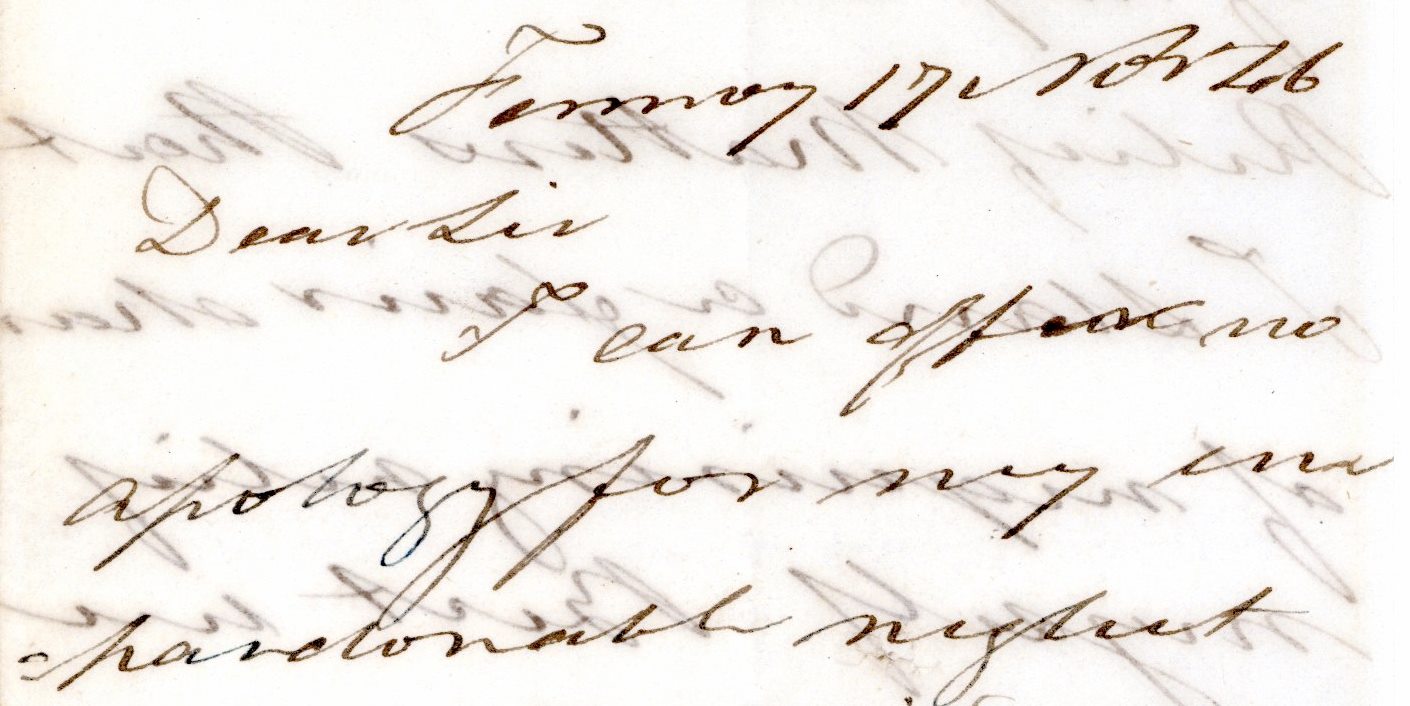 Fermoy 17 Novr 46
Dear Sir
I can offer no
apology for my un
=pardonable neglect